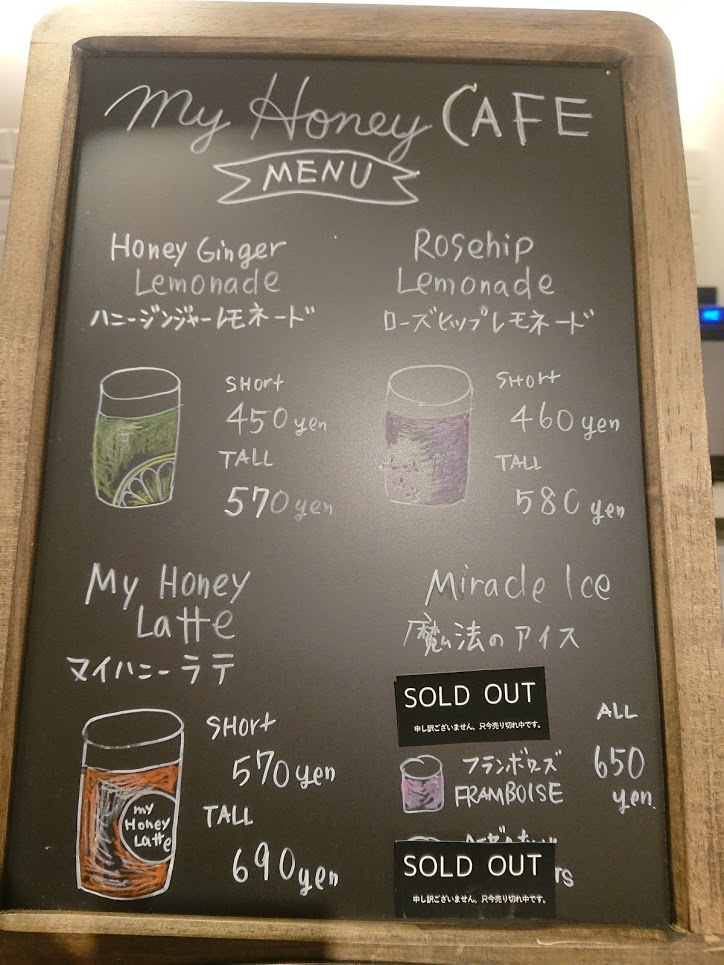 My Honey CAFE
MENU
Honey Ginger
Lemonade
ハニージンジャーレモネード
SHort
450yen
TALL
570yen
Rosehip
Lemonade
ローズヒップレモネード
SHort
460yen
TALL
580yen
My Honey
Latte
マイハニーラテ
my
Honey
Latte
SHort
570yen
TALL
690yen
Miracle Ice
魔法のアイス
SOLD OUT
申し訳ございません。只今売り切れ中です。
フランボワーズ
FRAMBOISE
ALL
650
yen
SOLD OUT
申し訳ございません。只今売り切れ中です。